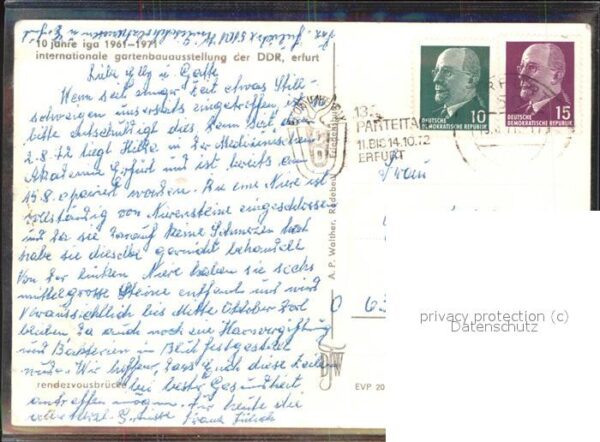 10 jahre iga 1961-1971
internationale gartenbauausstellung der DDR, erfurt
Liebe u.
Wenn seit einiger Zeit etwas Still-
schweigen unserseits eingetreten ist
bitte entschuldigt dies, denn seit dem
2.8.72 liegt Hilde in der Medizinischen
Akademie Erfurt und ist bereits am
15.8. operiert worden. Die eine Niere ist
vollständig von Nierensteine eingeschlossen
und da sie darauf keine Schmerzen hat
habe sie dieselbe garnicht behandelt
Von der linken Niere haben sie sechs
mittelgrosse Steine entfernt und wird
voraussichtlich bis Mitte Oktober dort
bleiben da auch noch eine Harnvergiftung
und Bakterien im Blut festgestellt
wurde. Wir hoffen, dass Euch diese Zeilen
rendezvousbrücke
bei bester Gesundheit
antreffen mögen. Für heute die
Grüsse
DEUTSCHE
DEMOKRATISCHE REPUBLIK
10
DEUTSCHE
DEMOKRATISCHE REPUBLIK
15
13.
PARTEITAG
11. BIS 14.10.72
ERFURT
Frau
A. P. Walther, Radebeul
EVP 20
privacy protection (c)
Datenschutz